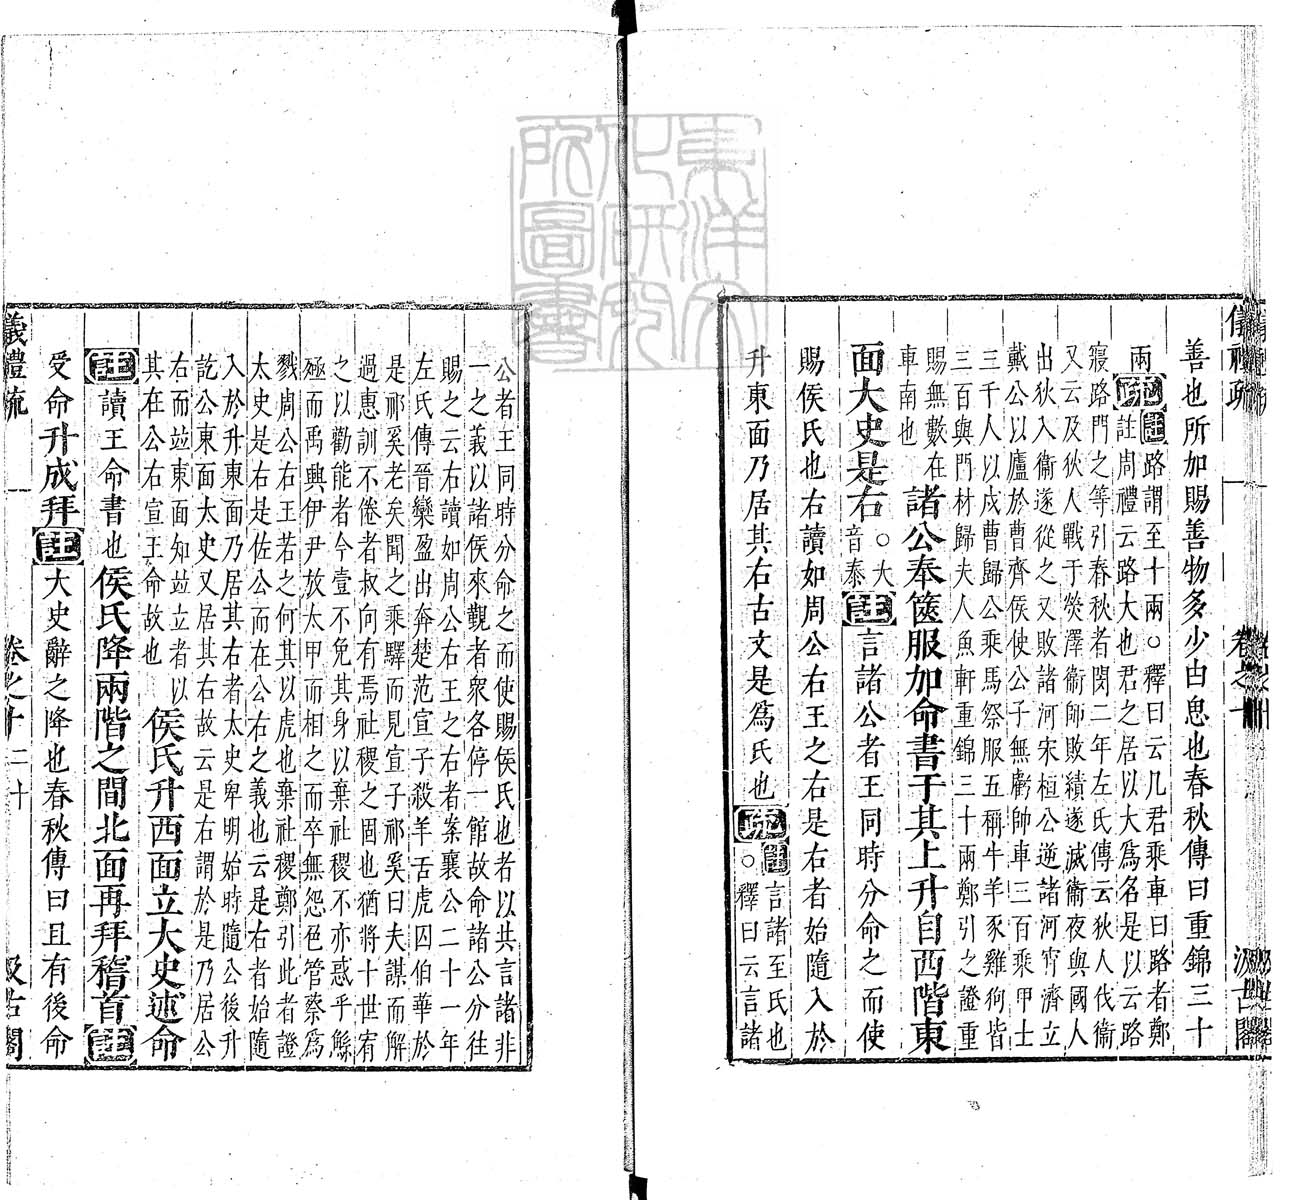 儀禮疏 卷之十 汲古閣
善也所加賜善物多少由恩也春秋傳曰重錦三十
兩疏註路謂至十兩○釋曰云凡君乘車曰路者鄭
註周禮云路大也君之居以大爲名是以云路
寢路門之等引春秋者閔二年左氏傳云狄人伐衞
又云及狄人戰于熒澤衞師敗績遂滅衞夜與國人
出狄入衞遂從之又敗諸河宋桓公逆諸河宵濟立
戴公以廬於曹齊侯使公子無虧帥車三百乘甲士
三千人以戍曹歸公乘馬祭服五稱牛羊豕雞狗皆
三百與門材歸夫人魚軒重錦三十兩鄭引之證重
賜無數在
車南也
諸公奉篋服加命書于其上升自西階東
面大史是右○大
音泰
註言諸公者王同時分命之而使
賜侯氏也右讀如周公右王之右是右者始隨入於
升東面乃居其右古文是爲氏也疏註言諸至氏也
○釋曰云言諸
公者王同時分命之而使賜侯氏也者以其言諸非
一之義以諸侯來覲者衆各停一館故命諸公分往
賜之云右讀如周公右王之右者案襄公二十一年
左氏傳晉欒盈出奔楚范宣子殺羊舌虎囚伯華於
是祁奚老矣聞之乘驛而見宣子祁奚曰夫謀而解
過惠訓不倦者叔向有焉社稷之固也猶將十世宥
之以勸能者今壹不免其身以棄社稷不亦惑乎鯀
殛而禹興伊尹放太甲而相之而卒無怨色管蔡爲
戮周公右王若之何其以虎也棄社稷鄭引此者證
太史是右是佐公而在公右之義也云是右者始隨
入於升東面乃居其右者太史卑明始時隨公後升
訖公東面太史又居其右故云是右謂於是乃居公
右而竝東面知竝立者以
其在公右宣王命故也
侯氏升西面立大史述命
註讀王命書也侯氏降兩階之間北面再拜稽首註
受命升成拜註大史辭之降也春秋傳曰且有後命
儀禮疏 卷之十 二十 汲古閣
東洋文化研究所圖書